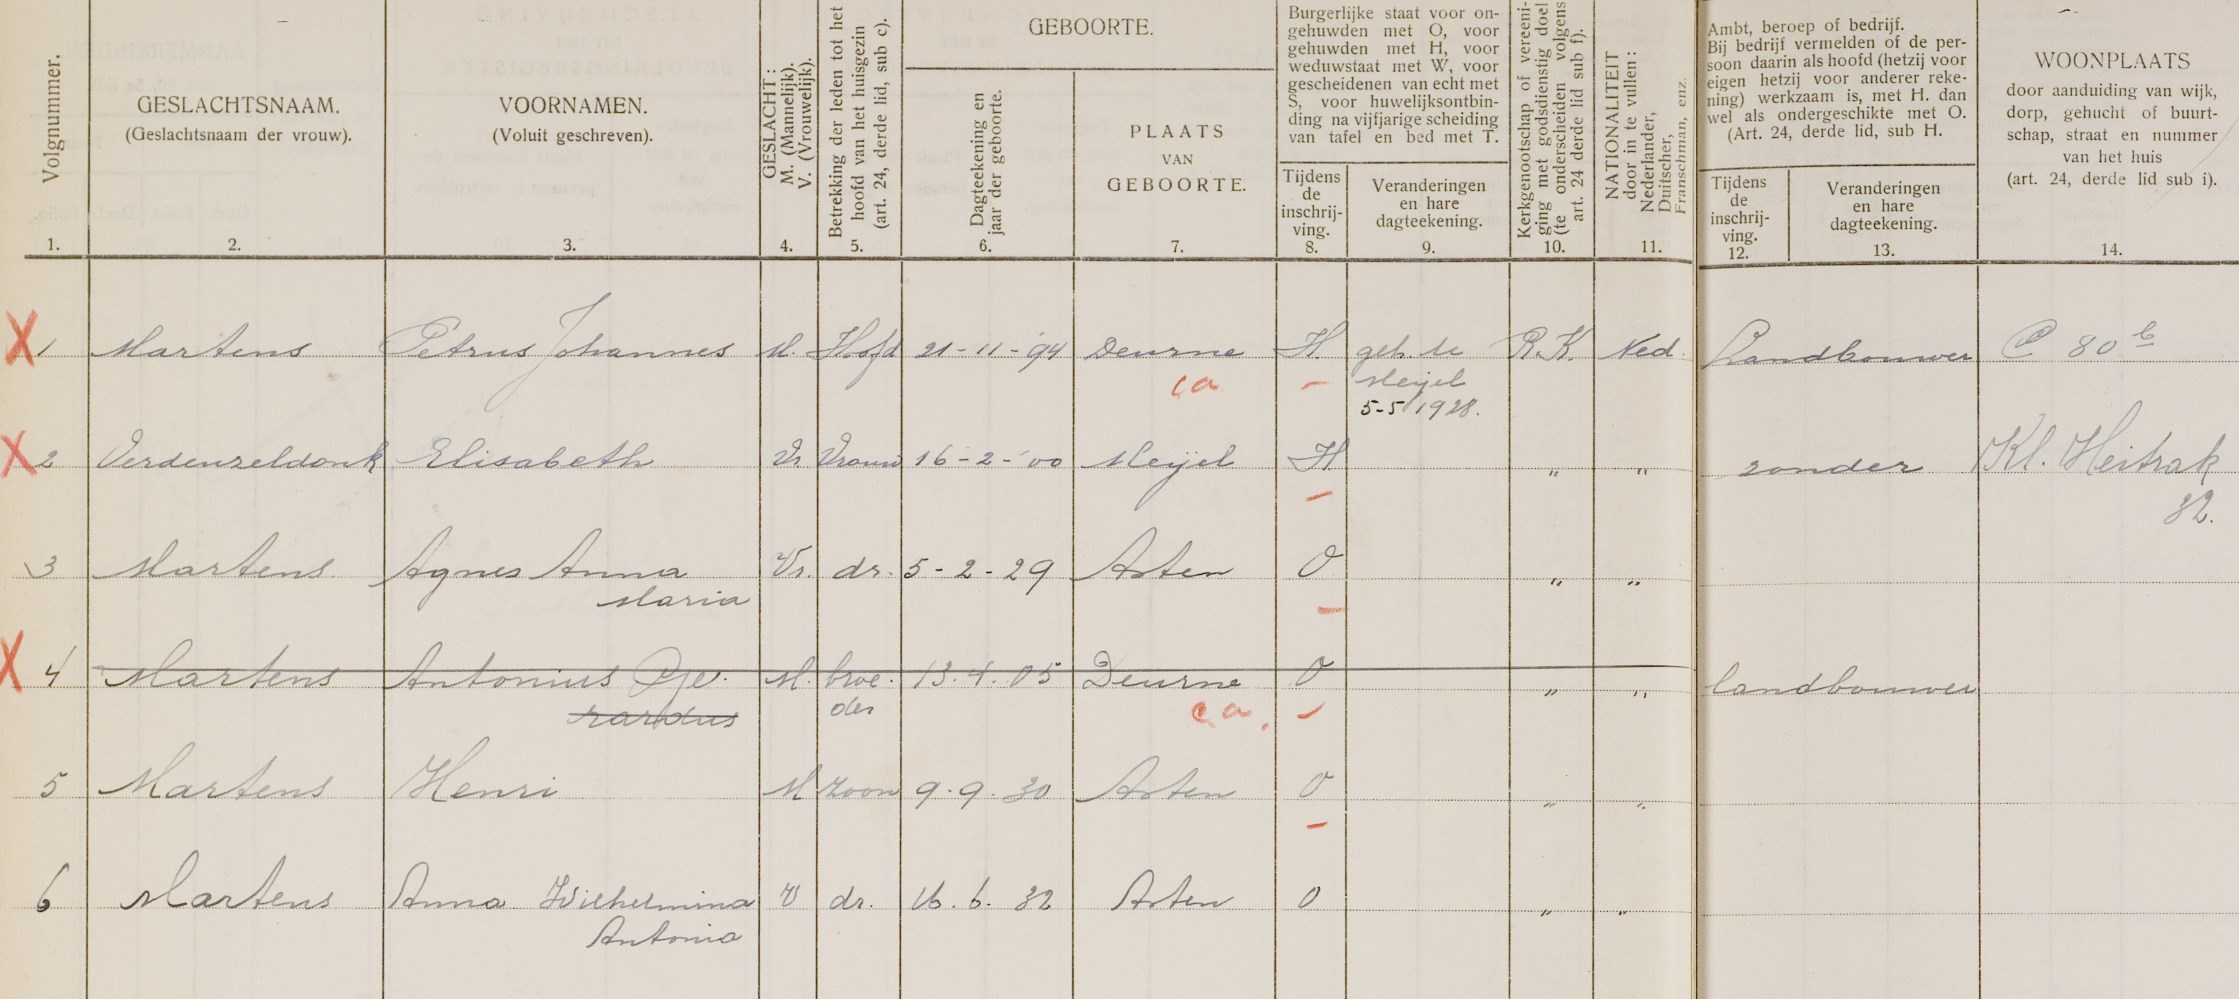 Volgnummer.
1.
GESLACHTSNAAM.
(Geslachtsnaam der vrouw).
2.
VOORNAMEN.
(Voluit geschreven).
3.
GESLACHT:
M. (Mannelijk).
V. (Vrouwelijk).
4.
Betrekking der leden tot het
hoofd van het huisgezin
(art. 24, derde lid, sub c).
5.
GEBOORTE.
Dagteekening en
jaar der geboorte.
6.
PLAATS
VAN
GEBOORTE.
7.
Burgerlijke staat voor on-
gehuwden met O, voor
gehuwden met H, voor
weduwstaat met W, voor
gescheidenen van echt met
S, voor huwelijksontbin-
ding na vijfjarige scheiding
van tafel en bed met T.
Tijdens
de
inschrij-
ving.
8.
Veranderingen
en hare
dagteekening.
9.
Kerkgenootschap of vereeni-
ging met godsdienstig doel
(te onderscheiden volgens
art. 24 derde lid sub f).
10.
NATIONALITEIT
door in te vullen:
Nederlander,
Duitscher,
Franschman, enz.
11.
Ambt, beroep of bedrijf.
Bij bedrijf vermelden of de per-
soon daarin als hoofd (hetzij voor
eigen hetzij voor anderer reke-
ning) werkzaam is, met H. dan
wel als ondergeschikte met O.
(Art. 24, derde lid, sub H.
Tijdens
de
inschrij-
ving.
12.
Veranderingen
en hare
dagteekening.
13.
WOONPLAATS
door aanduiding van wijk,
dorp, gehucht of buurt-
schap, straat en nummer
van het huis
(art. 24, derde lid sub i).
14.
X 1 Martens Petrus Johannes M. Hofd 21-11-'94 Deurne H. geh. te R.K. Ned. Landbouwer C 80 b
ca Meijel
5-5 1928.
X 2 Verdenzeldonk Elisabeth Vr. Vrouw 16-2-'00 Meijel H " " zonder Kl. Heitrak
32.
3 Martens Agnes Anna Vr. dr. 5-2-29 Asten O " "
Maria
X 4 Martens Antonius Ge- M. broe- 13.4.05 Deurne O " " landbouwer
rardus der ca.
5 Martens Henri M zoon 9.9.30 Asten O " "
6 Martens Anna Wilhelmina V dr. 16.6.32 Asten O " "
Antonia